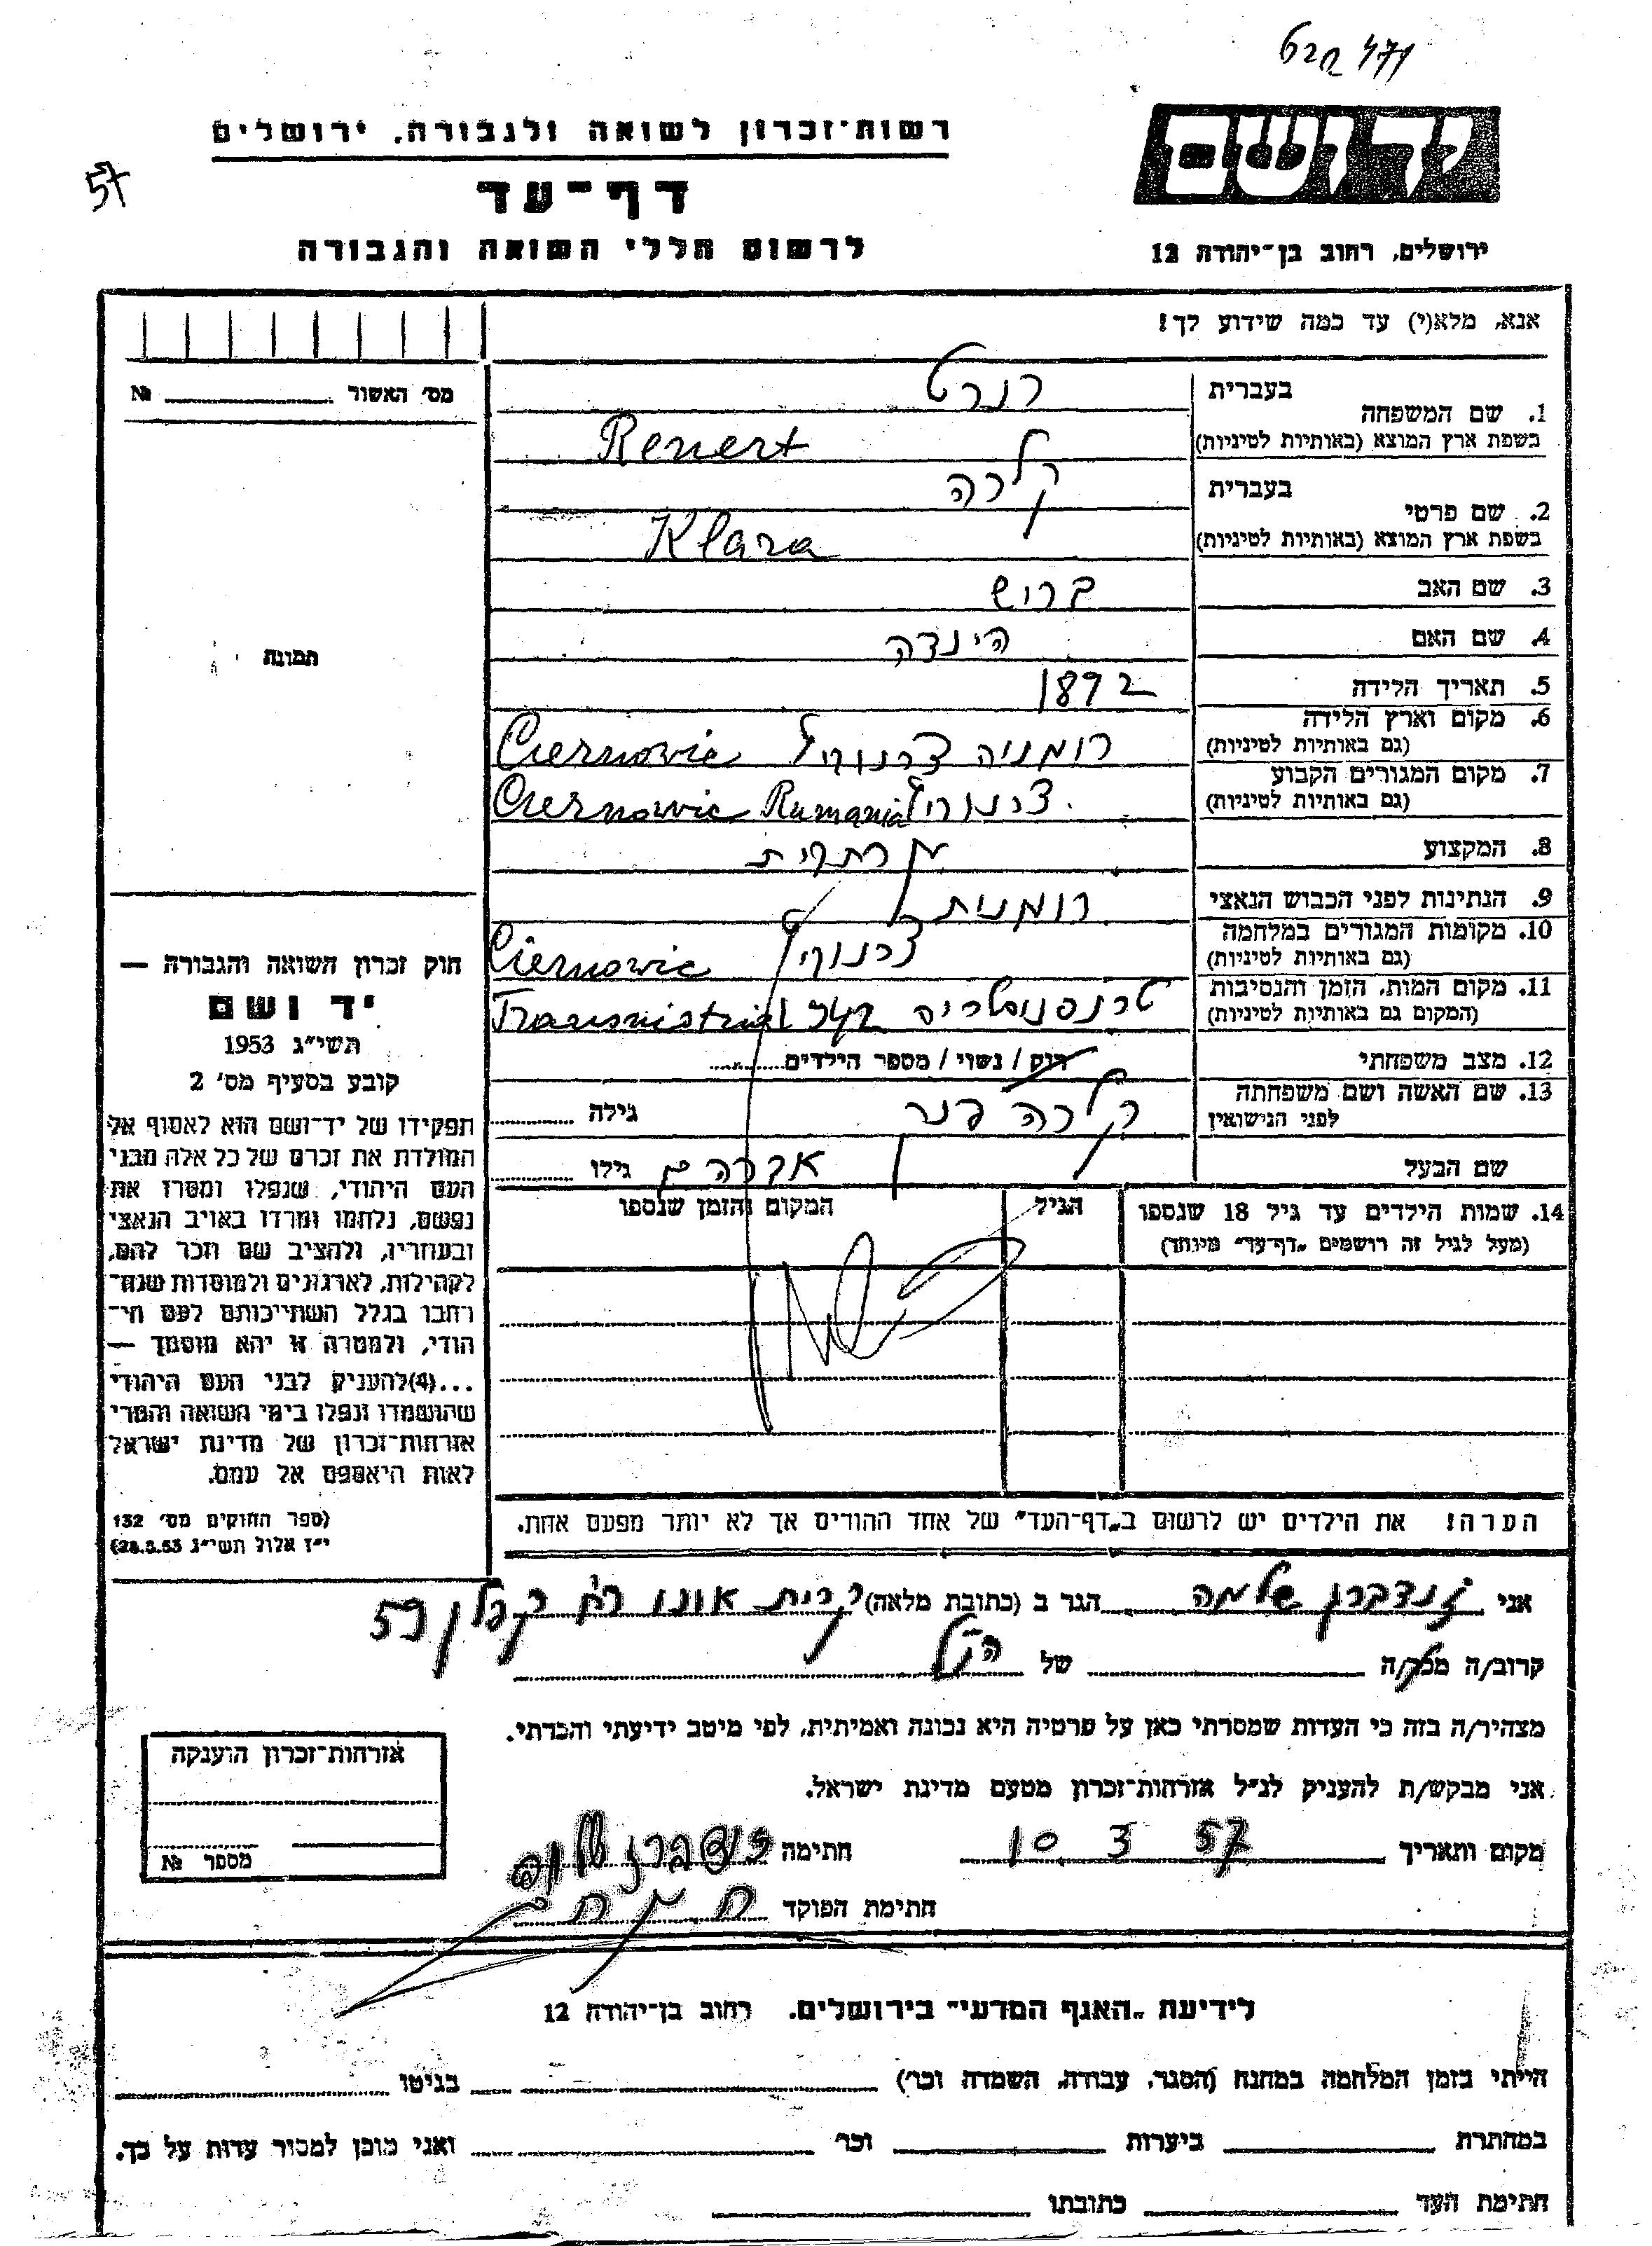 471
57
רשות-זכרון לשואה ולגבורה, ירושלים
דף-עד
לרשום חללי השואה והגבורה
ידושם
ירושלים, רחוב בן-יהודה 12
אנא, מלא(י) עד כמה שידוע לך!
מס׳ האשור № 
תמונה
בעברית רנרט
1. שם המשפחה
בשפת ארץ המוצא (באותיות לטיניות) Renert
בעברית קלרה
2. שם פרטי
בשפת ארץ המוצא (באותיות לטיניות) Klara
3. שם האב ברוש
4. שם האם הינדה
5. תאריך הלידה 1892
6. מקום וארץ הלידה רומניה צרנוביץ Ciernovic
(גם באותיות לטיניות)
7. מקום המגורים הקבוע צרנוביץ Ciernowic Rumania
(גם באותיות לטיניות)
8. המקצוע
9. הנתינות לפני הכבוש הנאצי רומנית
10. מקומות המגורים במלחמה Ciernowic
(גם באותיות לטיניות)
11. מקום המות, הזמן והנסיבות טרנסניסטריה Transnistria
(המקום גם באותיות לטיניות)
12. מצב משפחתי רוק / נשוי / מספר הילדים
13. שם האשה ושם משפחתה קלרה גילה
לפני הנישואין
שם הבעל אברהם גילו
14. שמות הילדים עד גיל 18 שנספו הגיל המקום והזמן שנספו
(מעל לגיל זה רושמים „דף-עד" מיוחד)
הערה! את הילדים יש לרשום ב„דף-העד" של אחד ההורים אך לא יותר מפעם אחת.
חוק זכרון השואה והגבורה —
יד ושם
תשי״ג 1953
קובע בסעיף מס׳ 2
תפקידו של יד-ושם הוא לאסוף אל
המולדת את זכרם של כל אלה מבני
העם היהודי, שנפלו ומסרו את
נפשם, נלחמו ומרדו באויב הנאצי
ובעוזריו, ולהציב שם וזכר להם,
לקהילות, לארגונים ולמוסדות שנח-
רבו בגלל השתייכותם לעם הי-
הודי, ולמטרה זו יהא מוסמך —
...(4)להעניק לבני העם היהודי
שהושמדו ונפלו בימי השואה והמרי
אזרחות-זכרון של מדינת ישראל
לאות היאספם אל עמם.
(ספר החוקים מס׳ 132
י״ז אלול תשי״ג 28.8.53)
אני זנדברג שלמה הגר ב (כתובת מלאה) קרית אונו רח קפלן 59
קרוב/ה מכר/ה של הנ״ל
מצהיר/ה בזה כי העדות שמסרתי כאן על פרטיה היא נכונה ואמיתית, לפי מיטב ידיעתי והכרתי.
אני מבקש/ת להעניק לנ״ל אזרחות-זכרון מטעם מדינת ישראל.
מקום ותאריך 10 3 57 חתימה זנדברג שלמה
חתימת הפוקד
אזרחות-זכרון הוענקה
מספר №
לידיעת „האגף המדעי" בירושלים. רחוב בן-יהודה 12
הייתי בזמן המלחמה במחנה (הסגר, עבודה, השמדה וכו׳) בגיטו
במחתרת ביערות וכו׳ ואני מוכן למסור עדות על כך.
חתימת העד כתובתו